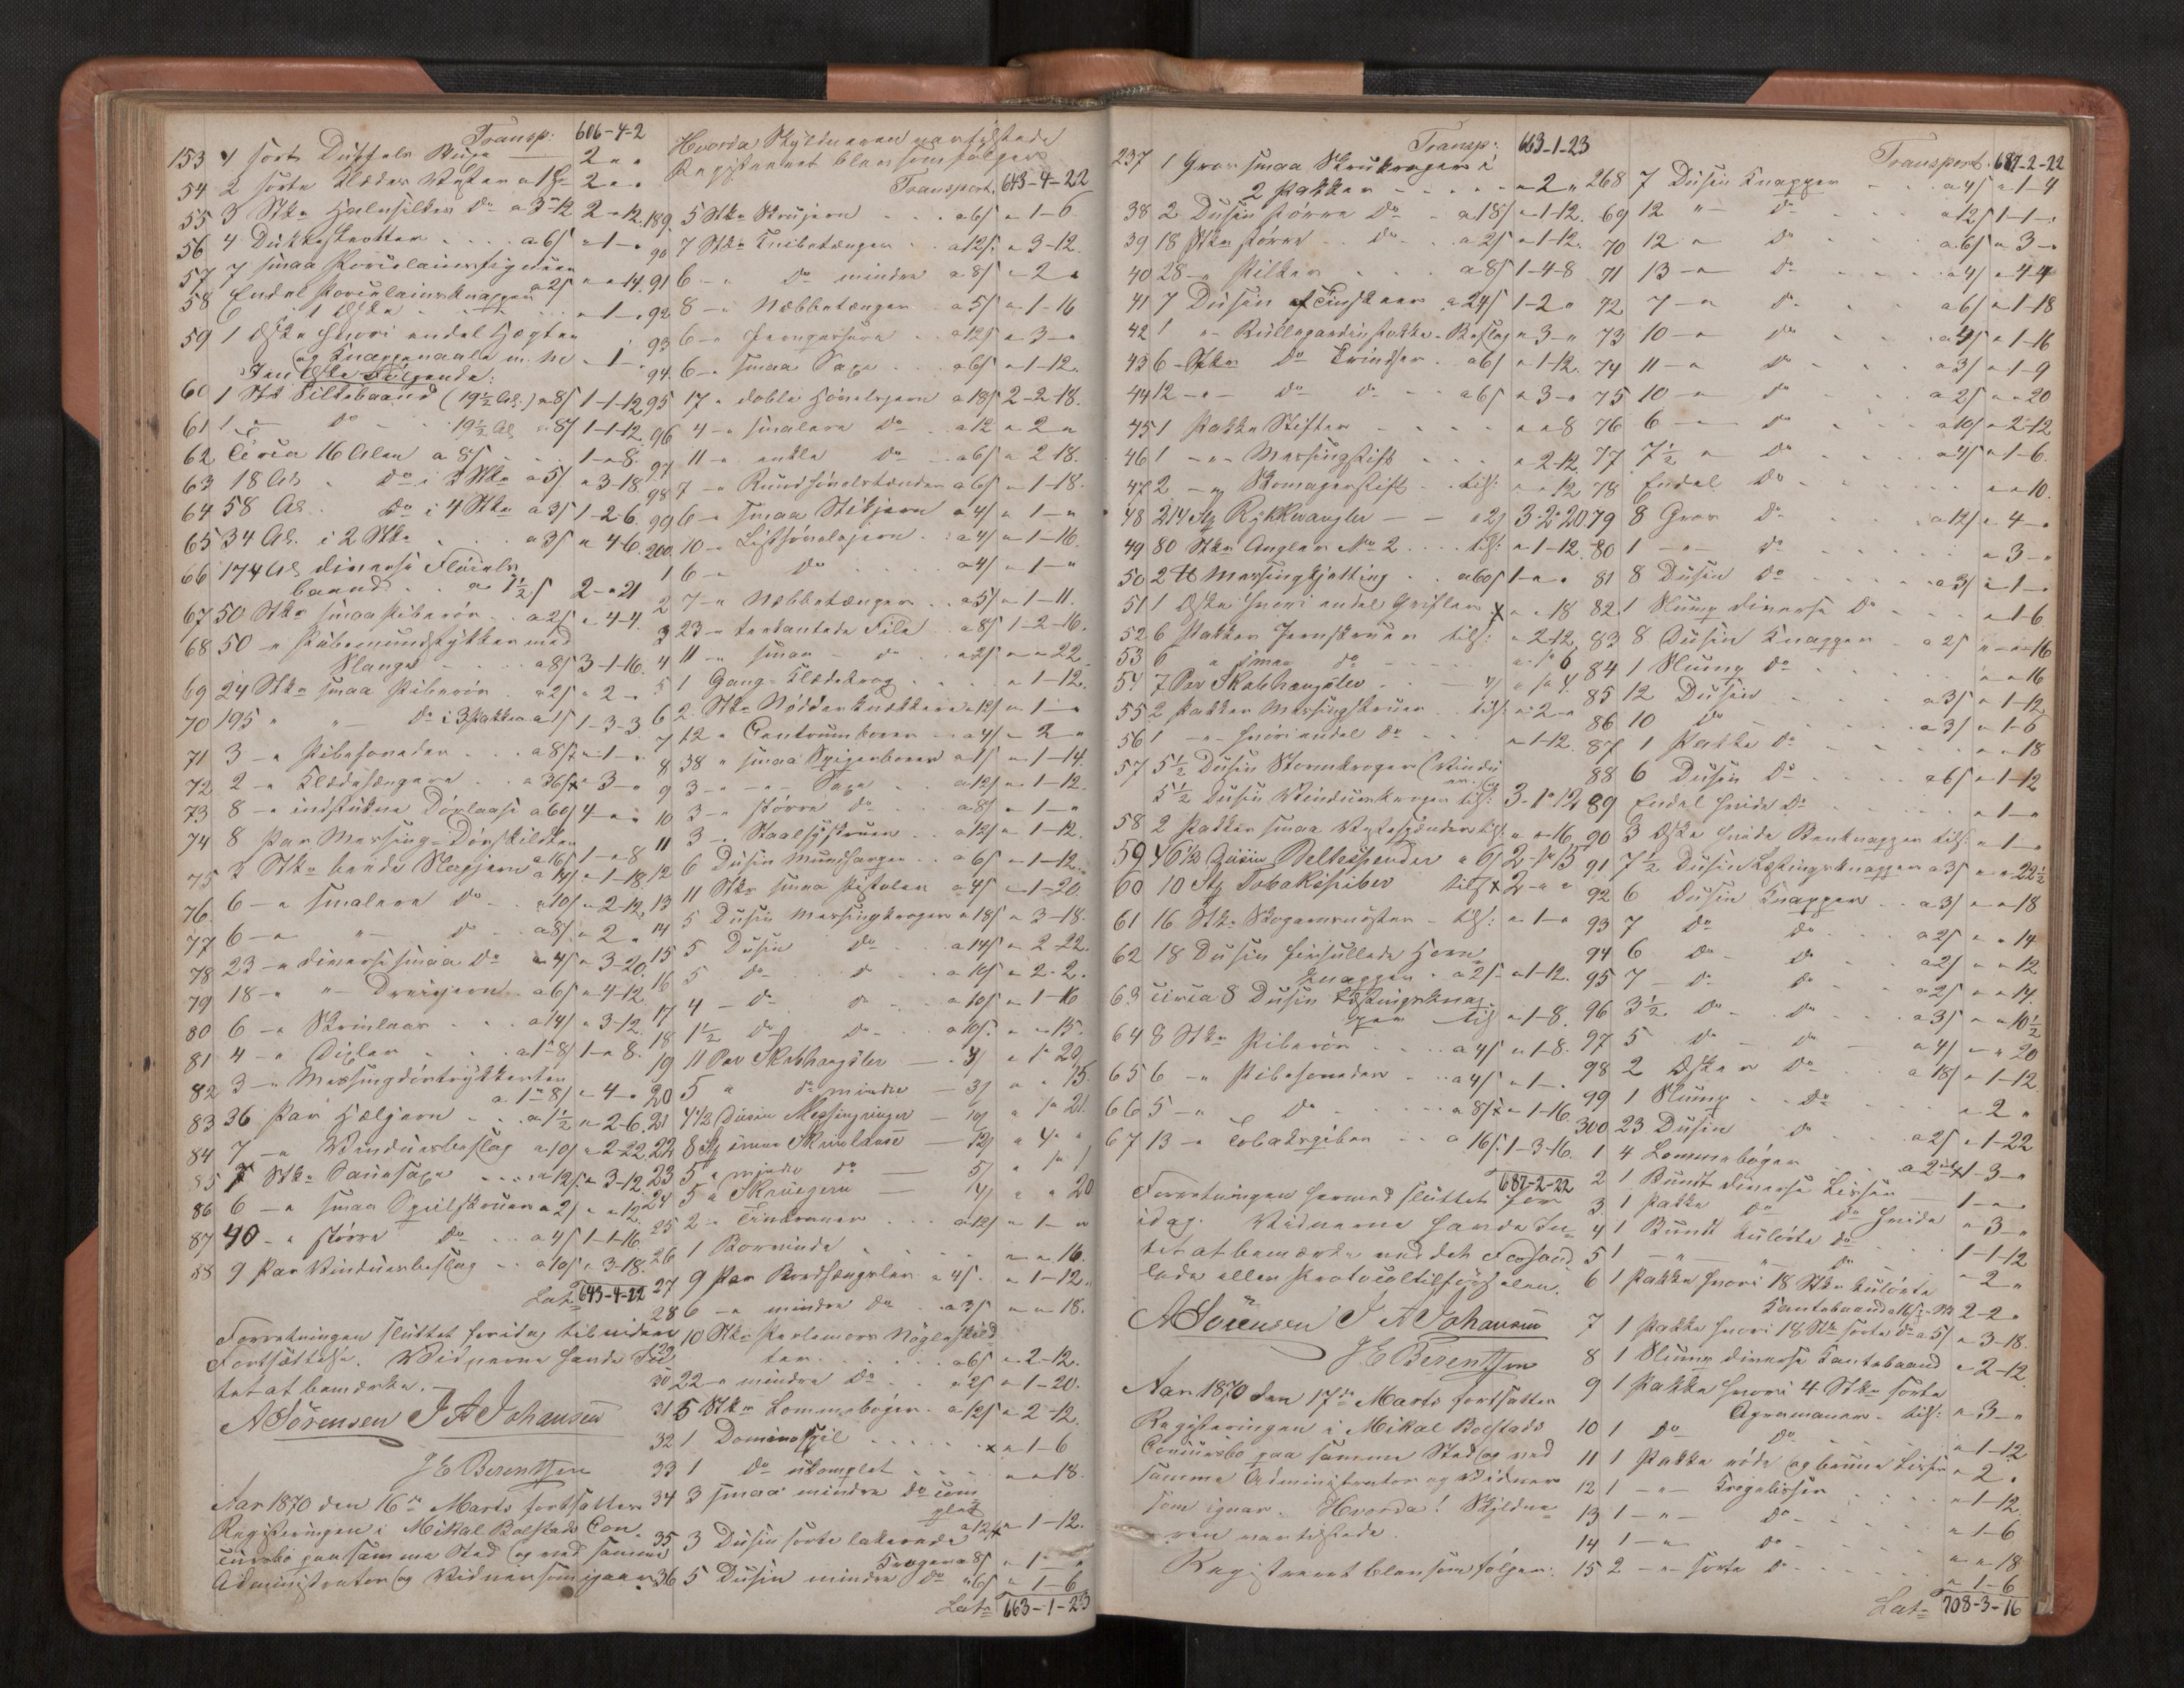 Transp: 606-4-2
153 4 sorte Düffels Buxe — 2 " "
54 2 sorte Klædes Veste a 1 — 2 " "
55 3 Stkr Halvsilkes Do a 3-12 2 " 12
56 4 Dukkeskrotter a 6 " 1 "
57 7 smaa Porcelainsfigurer a 2 " " 14
58 Endel Porcelainsknapper
i 1 Æske " 1 "
59 1 Æske hvori endel Hægter
og Knappenaale m. m. " 1 "
I en Æske Følgende:
60 1 Stk Silkebaand (19½ Al.) a 8 1-1-12
61 1 " Do 19½ Al a 8 1-1-12
62 Circa 16 Alen a 8 1 " 8
63 18 Al. Do i 3 Stkr a 5 " 3-18
64 58 Al. Do i 4 Stkr a 3 1-2-6
65 34 Al. i 2 Stkr a 3 " 4-6
66 174 Al diverse Fløiels
baand a 1½ 2 " 21
67 50 Stkr smaa Piberør a 2 " 4-4
68 50 " Pibemundstykker med
Slange a 8 3-1-16
69 24 Stkr smaa Piberør a 2 " 2 "
70 195 " " Do i 3 Pakker a 1 1-3-3
71 3 " Pibehoveder a 8 x " 1 "
72 2 " Klædehængere a 36 x " 3 "
73 8 " indstukne Dørlaase a 60 4 " "
74 8 Par Messing-Dørskilter a 16 1 " 8
75 3 Stkr brede Stugjern a 14 " 1-18
76 6 " smalere Do a 10 " 2-12
77 6 " " Do a 8 " 2 "
78 23 " diverse smaa Do a 4 " 3-20
79 18 " " Dreiejern a 6 " 4-12
80 6 " Skrinlaas a 14 " 3-12
81 4 " Dixler a 1-8 1 " 8
82 3 " Messingdørtrykkerter
a 1-8 " 4 "
83 36 Par Hæljern a 1½ " 2-6
84 7 " Vinduesbeslag a 10 " 2-22
85 7 Stkr Saugsaxe a 12 " 3-12
86 6 " smaa Speilskruer a 2 " " 12
87 40 " større Do a 4 1-1-16
88 9 Par Vinduesbeslag a 10 " 3-18
Lat. 643-4-22
Forretningen sluttet foridag til videre
Fortsættelse. Vidnerne havde In-
tet at bemærke.
A Sörensen J A Johansen
J E Berentsen
Aar 1870 den 16de Marts fortsattes
Registeringen i Mikal Bolstads Con-
cursbo paa samme Sted og ved samme
Administrator og Vidner som igaar.
Hvorda Skyldneren var tilstede
Registreret blev som følger
Transport 643-4-22
189 5 Stkr Skrujern a 6 " 1-6
90 7 Stkr Knibetænger a 12 " 3-12
91 6 " Do mindre a 8 " 2 "
92 8 " Næbbetænger a 5 " 1-16
93 6 " Jernpassere a 12 " 3 "
94 6 " smaa Saxe a 6 " 1-12
95 17 " doble Høveljern a 18 2-2-18
96 4 " smalere Do a 12 " 2 "
97 11 " enkle Do a 6 " 2-18
98 7 " Rundhøveltænder a 6 " 1-18
99 6 " smaa Stikjern a 4 " 1 "
200 10 " Listhøveljern a 4 " 1-16
1 6 " Do a 4 " 1 "
2 7 " Næbbetænger a 5 " 1-11
3 23 " trekantede File a 8 1-2-16
4 11 " smaa " do a 2 " " 22
5 1 Gang-Klædekrog " 1-12
6 2 Stkr Nøddeknækkere a 12 " 1 "
7 12 " Centrumborer a 4 " 2 "
8 38 " smaa Spigerborer a 1 " 1-14
9 3 " " Saxe a 12 " 1-12
10 3 " større do a 8 " 1 "
11 3 " Staalsyskruer a 12 " 1-12
12 6 Dusin Mundharper a 6 " 1-12
13 11 Stkr smaa Pistoler a 4 " 1-20
14 5 Dusin Messingkroger a 18 " 3-18
15 5 Dusin Do a 14 " 2-22
16 5 do d a 10 " 2-2
17 4 " do do a 10 " 1-16
18 1½ do Do a 10 " " 15
19 11 Par Skabhængsler — 4 " 1 " 20
20 5 " do mindre — 3 " " 15
21 4½ Dusin Messingringer — 10 " 1 " 21
22 8 Stkr " Skruelaase — 12 " 4 "
23 5 " mindre do — 5 " 1 " 1
24 5 " Skruejern — 4 " " 20
25 2 " Tinkraner a 12 " 1 "
26 1 Borvinde " " 16
27 9 Par Bordhængsler a 4 " 1-12
28 6 " mindre do a 3 " " 18
29 10 Stkr Perlemors Nøgleskild
ter a 6 " 2-12
30 22 " mindre Do a 2 " 1-20
31 5 Stkr Lommebøger a 12 " 2-12
32 1 Dominospil x " 1-6
33 1 Do ukomplet " " 18
34 3 smaa mindre do com
plet a 12 x " 1-12
35 3 Dusin sorte lakerede
Kroger a 8 " 1 "
36 5 Dusin mindre Do a 6 " 1-6
Lat. 663-1-23
Transp: 663-1-23
237 1 Gros smaa Skrukroger i
2 Pakker " 2 "
38 2 Dusin større Do a 18 " 1-12
39 18 Stkr større Do a 2 " 1-12
40 28 " Pilker a 8 1-4-8
41 7 Dusin Tinskeer a 24 1-2 "
42 1 " Rullegardinstokke-Beslag " 3 "
43 6 Stkr Do Trindser a 6 " 1-12
44 12 " Do Do a 6 " 3 "
45 1 Pakke Stifter " " 8
46 1 " Messingstift " 2-12
47 2 " Skomagerstift tils: " " 12
48 214 Stk Rykkeangler — a 2 3-2-20
49 80 Stkr Angler No 2 tils: " 1-12
50 2 ℔ Messingkjetting a 60 1 " "
51 1 Æske hvori endel Grifler x " " 18
52 6 Pakker Jernskruer tils: " 2-12
53 6 " smaa do " 1 " 6
54 7 Par Skabhængsler 4 " 1 " 4
55 2 Pakker Messingskruer tils: " 2 "
56 1 " hvori endel Do " 1-12
57 5½ Dusin Stormkroger (Vindu
5½ Dusin Vindueskroger tils: 3-1-12
58 2 Pakker smaa Vestespænder tils: " " 16
59 46½ Dusin Beltespender a 6 2-1-15
60 10 Stk Tobakspiber tils x 2 " "
61 16 Stkr tils: " 1 "
62 18 Dusin Horn
knapper a 2 " 1-12
63 circa 8 Dusin Lastingsknap
per tils " 1-8
64 8 Stkr Piberør a 4 " 1-8
65 6 " Pibehoveder a 4 " 1 "
66 5 " Do a 8 x " 1-16
67 13 " Tobakspiber a 16 1-3-16
687-2-22
Forretningen hermed sluttet for
idag. Vidnerne havde In-
tet at bemærke ved det Forhand-
lede eller Protocoltilførselen.
A Sörensen J A Johansen
J E Berentsen
Aar 1870 den 17de Marts fortsattes
Registeringen i Mikal Bolstads
Concursbo paa samme Sted og ved
samme Administrator og Vidner
som igaar. Hvorda! Skyldne-
ren var tilstede.
Registreret blev som følger:
Transport 687-2-22
268 7 Dusin Knapper a 4 " 1-4
69 12 " do a 12 1-1 "
70 12 " do a 6 " 3 "
71 13 " do a 4 " 4-4
72 7 " do a 6 " 1-18
73 10 " do a 4 " 1-16
74 11 " do a 3 " 1-9
75 10 " do a 2 " " 20
76 6 " do a 10 " 2-12
77 7½ " Do a 4 " 1-6
78 Endel Do " " 10
79 8 Gros do a 12 " 4 "
80 1 " do " 3 "
81 8 Dusin do a 3 " 1 "
82 1 Slump diverse do " 1-6
83 8 Dusin Knapper a 2 " " 16
84 1 Slump do " " 16
85 12 Dusin a 3 " 1-12
86 10 do a 3 " 1-6
87 1 Pakke do " " 18
88 6 Dusin do a 6 " 1-12
89 Endel hvide do " 1 "
90 3 Æsker hvide Benknapper tils: " 1 "
91 7½ Dusin Lastingsknapper a 3 " " 22½
92 6 Dusin Knapper a 3 " " 18
93 7 do do a 2 " " 14
94 6 do do a 2 " " 12
95 7 " do do a 2 " " 14
96 3½ do do a 3 " " 10½
97 5 do do a 4 " " 20
98 2 Æsker do a 18 " 1-12
99 1 Slump do " 2 "
300 23 Dusin do a 2 " 1-22
1 4 Lommebøger a 2 x 1-3 "
2 1 Bundt diverse Lidser 1 " "
3 1 Pakke do do hvide " 3 "
4 1 Bundt kulørte do 1-1-12
5 1 " " do " 2 "
6 1 Pakke hvori 18 Stkr kulørte
Kantebaand a 16 2-2 "
7 1 Pakke hvori 18 Stkr sorte do a 5 " 3-18
8 1 Slump diverse Kantebaand " 2-12
9 1 Pakke hvori 4 Stkr sorte
Agramaner tils: " 3 "
10 1 do do " 1-12
11 1 Pakke røde og brune Lidser " 2 "
12 1 " Kregelidser " 1-12
13 1 " do " 1-6
14 1 " do " " 18
15 2 " sorte do " 1-6
Lat. 708-3-16